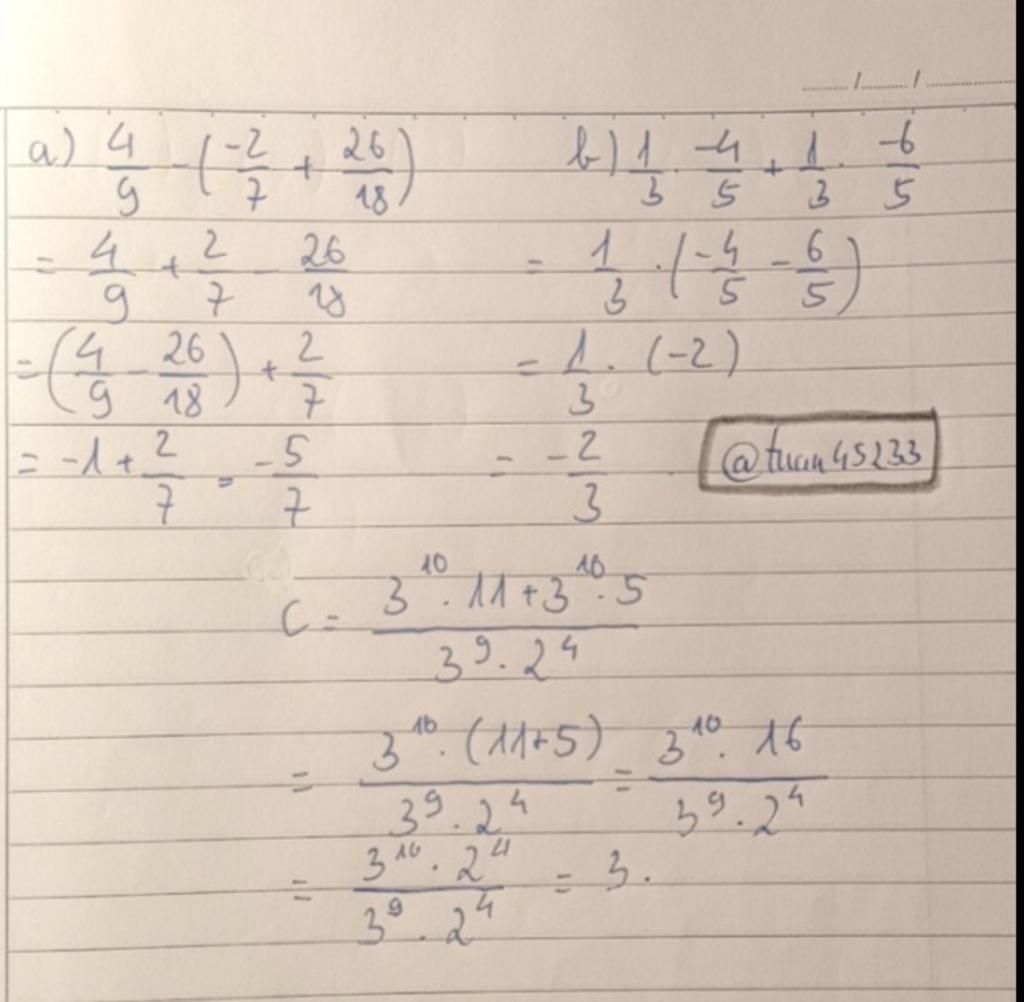 a) 4/9 - (-2/7 + 26/18)
= 4/9 + 2/7 - 26/18
= (4/9 - 26/18) + 2/7
= -1 + 2/7 = -5/7
b) 1/3 . -4/5 + 1/3 . -6/5
= 1/3 . (-4/5 - 6/5)
= 1/3 . (-2)
= -2/3
@tuan45233
C = (3^10 . 11 + 3^10 . 5)/(3^9 . 2^4)
= (3^10 . (11+5))/(3^9 . 2^4) = (3^10 . 16)/(3^9 . 2^4)
= (3^10 . 2^4)/(3^9 . 2^4) = 3.